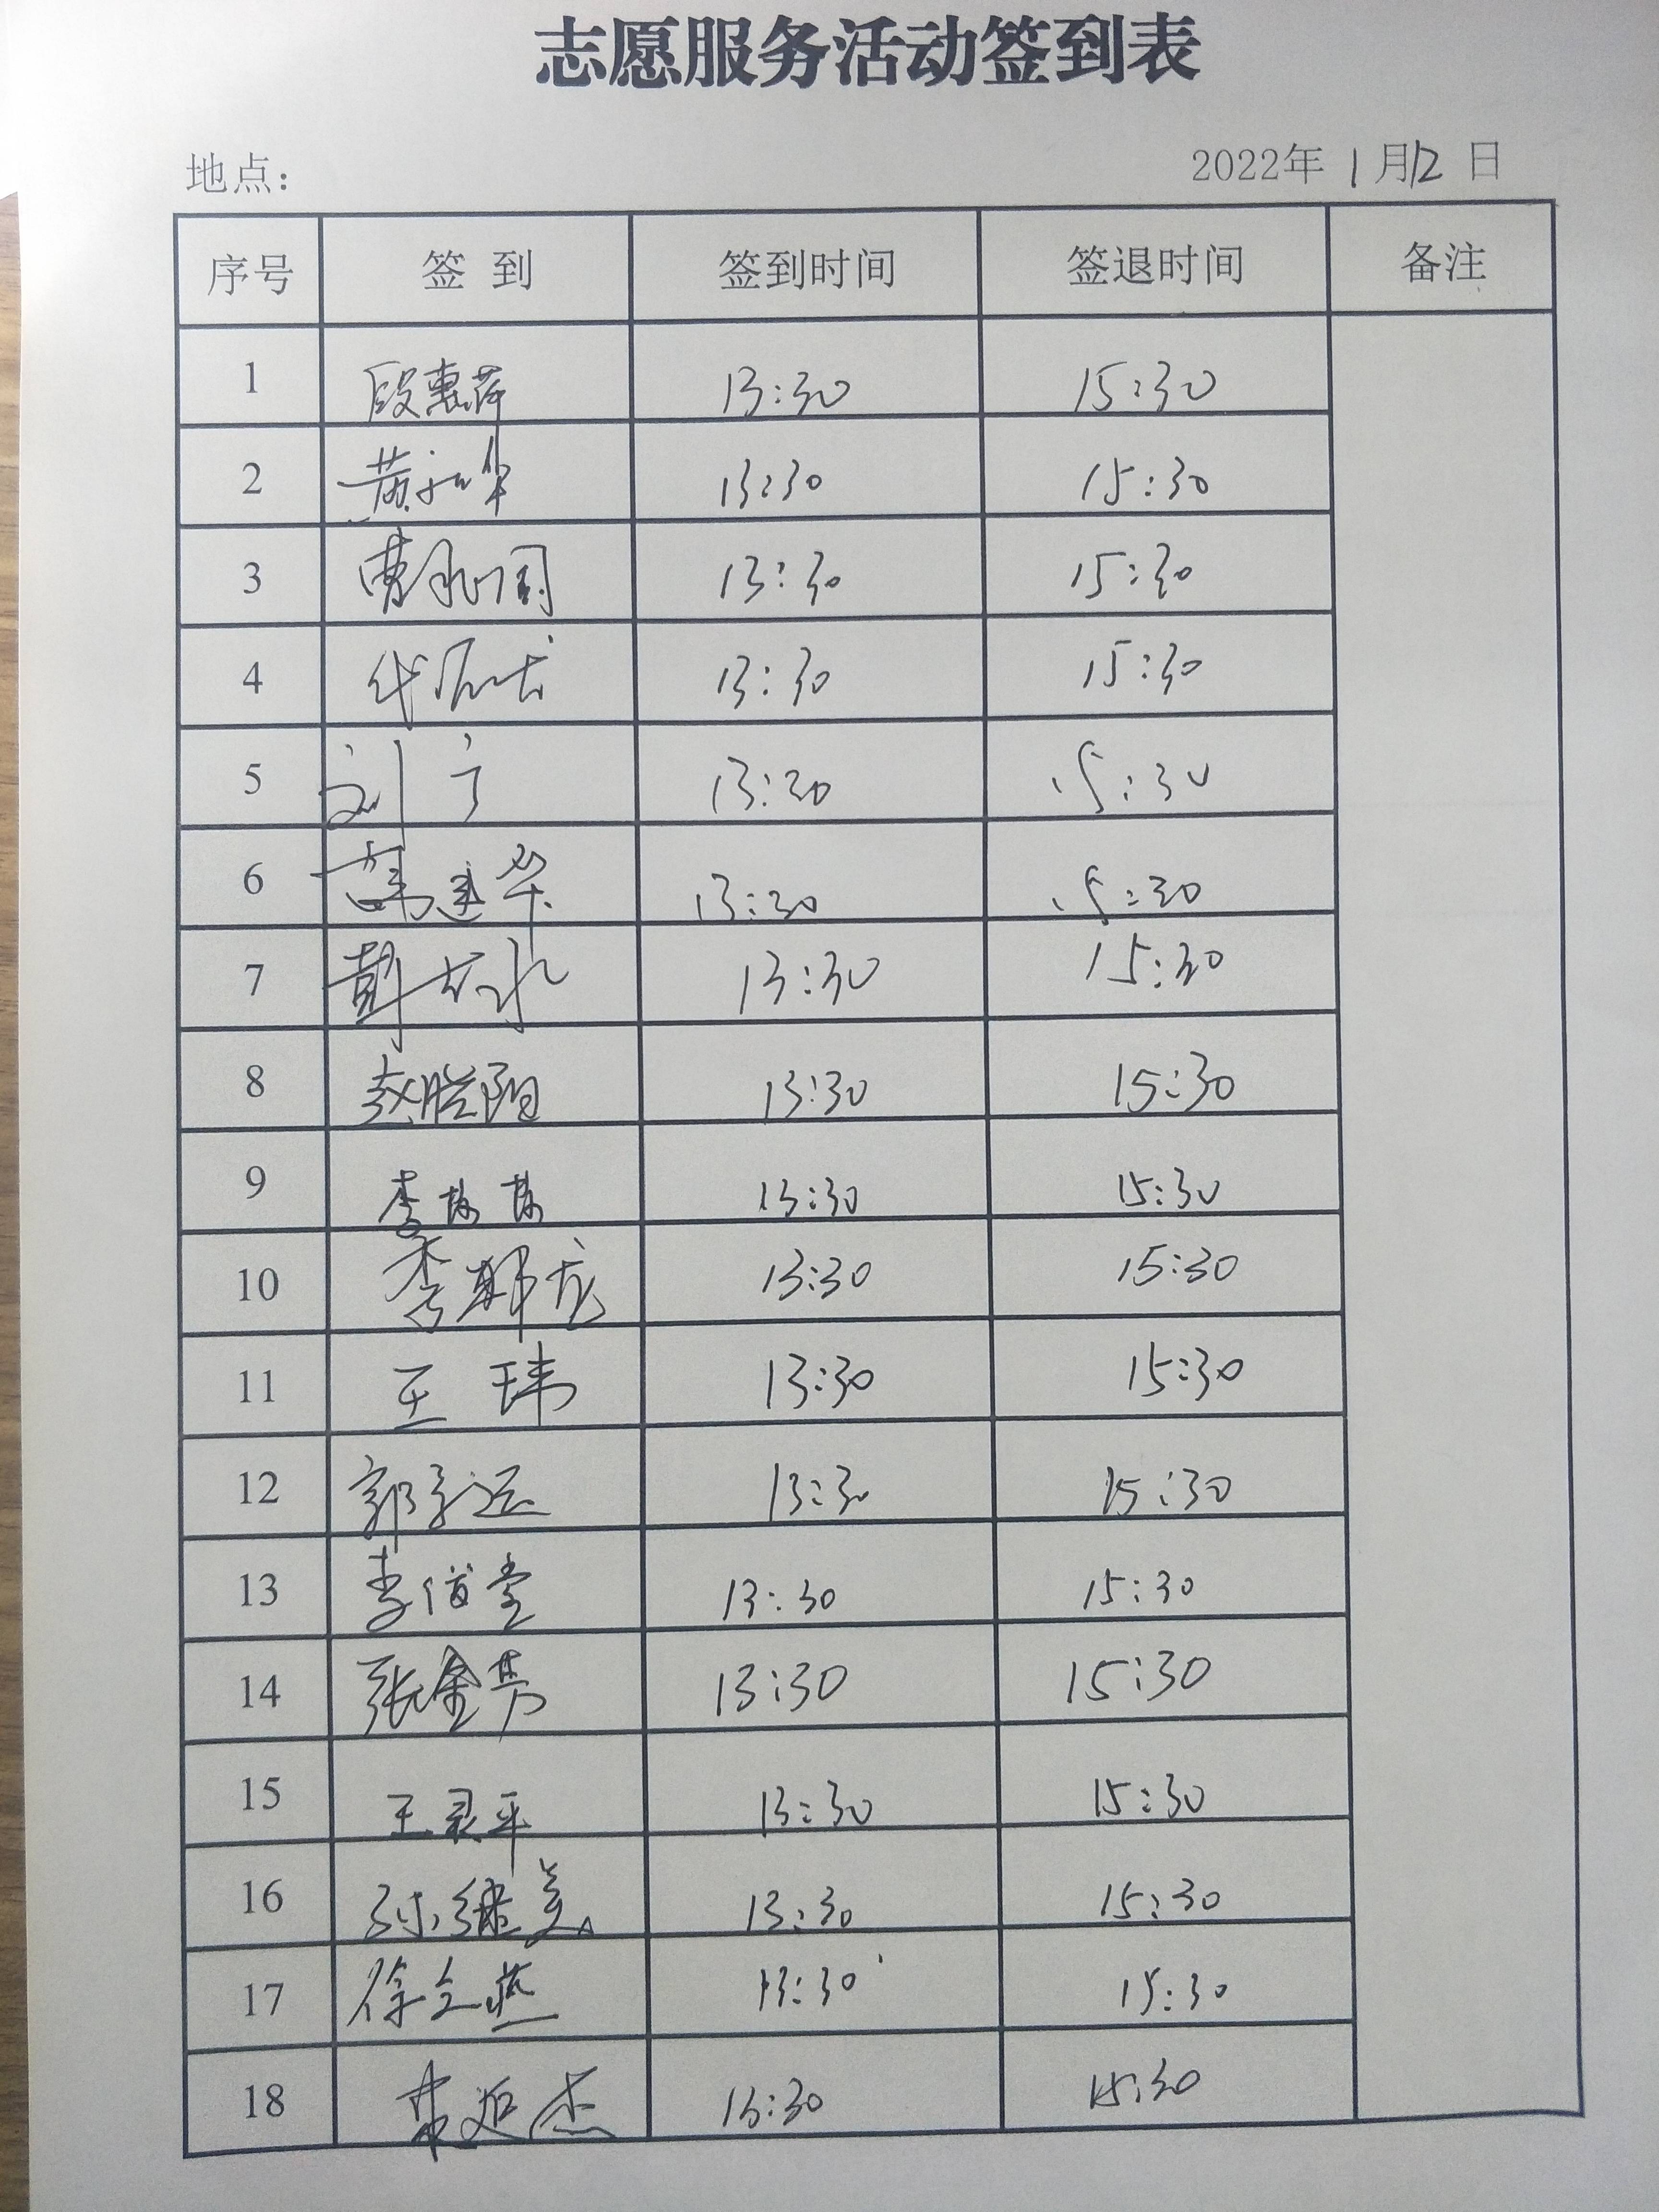 志愿服务活动签到表
地点: 2022年 1月12日
序号 签 到 签到时间 签退时间 备注
1 段惠萍 13:30 15:30
2 黄 13:30 15:30
3 曹 13:30 15:30
4 13:30 15:30
5 刘宁 13:30 15:30
6 韩建华 13:30 15:30
7 彭 13:30 15:30
8 赵胜阳 13:30 15:30
9 李 13:30 15:30
10 李 龙 13:30 15:30
11 王玮 13:30 15:30
12 郭永运 13:30 15:30
13 李俊堂 13:30 15:30
14 张金芳 13:30 15:30
15 王灵平 13:30 15:30
16 孙继美 13:30 15:30
17 徐立燕 13:30 15:30
18 杰 13:30 15:30